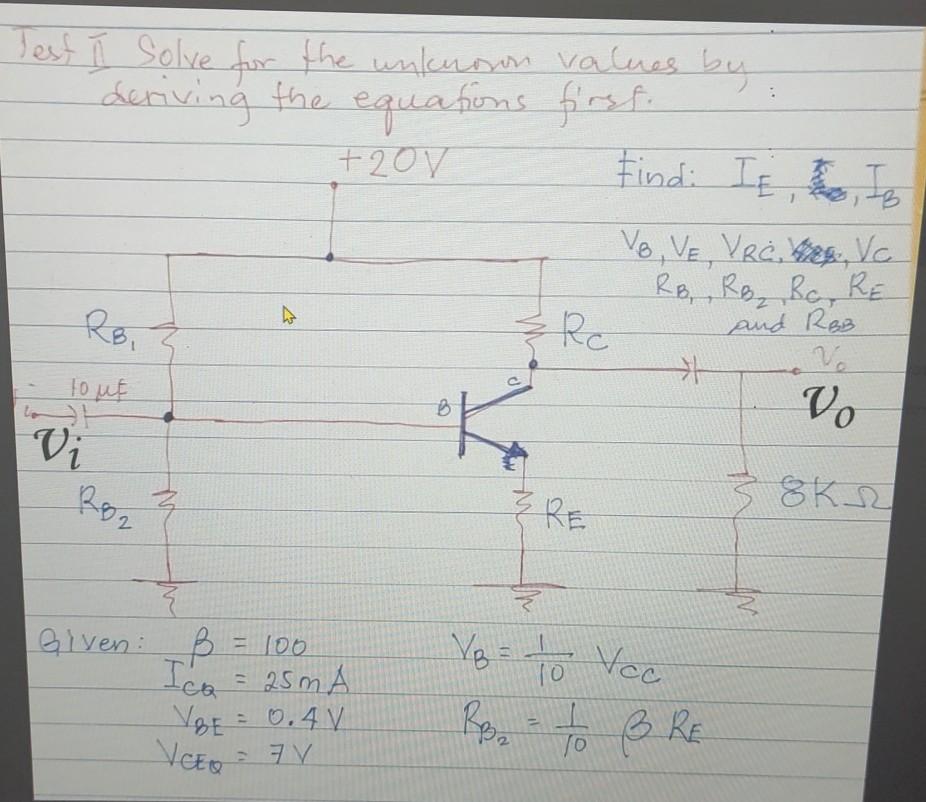 Test II Solve for the unknown values by
deriving the equations first.
+20V
Find: IE, IB
VB, VE, VRC, VC
RB1, RB2, RC, RE
and RBB
RB1
RC
Vo
Vo
10 μF
C
B
Vi
RB2
RE
8KΩ
Given: β = 100
ICQ = 25mA
VBE = 0.4V
VCEQ = 7V
VB = 1/10 VCC
RB2 = 1/10 β RE